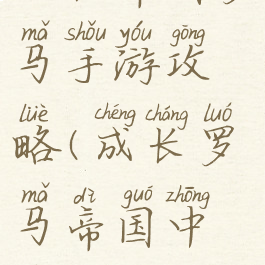 mǎ shǒu yóu gōng
马手游攻
lüè chéng cháng luó
略(成长罗
mǎ dì guó zhōng
马帝国中